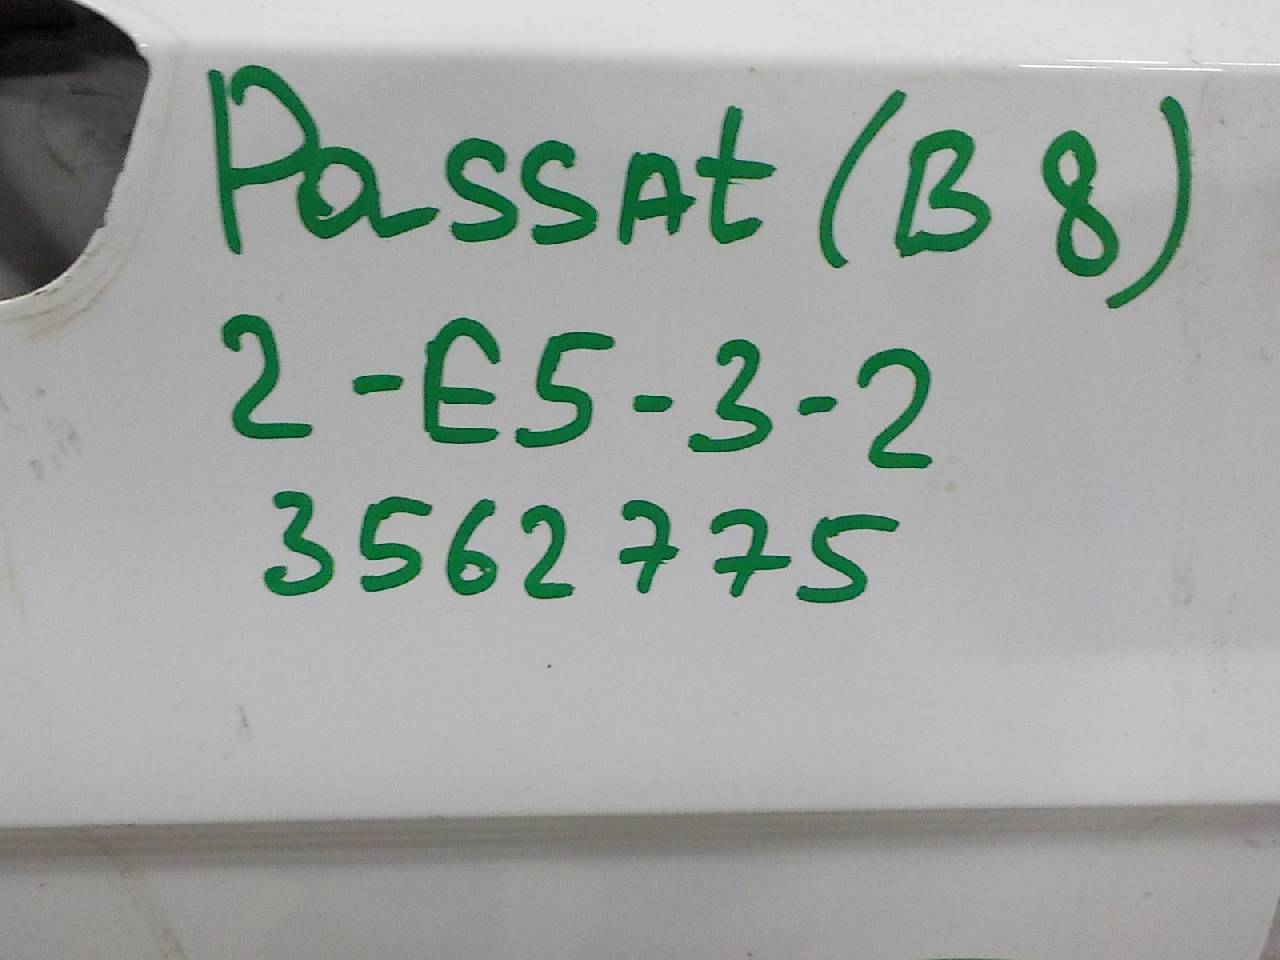 PassAt (B 8)
2-E5-3-2
3562775